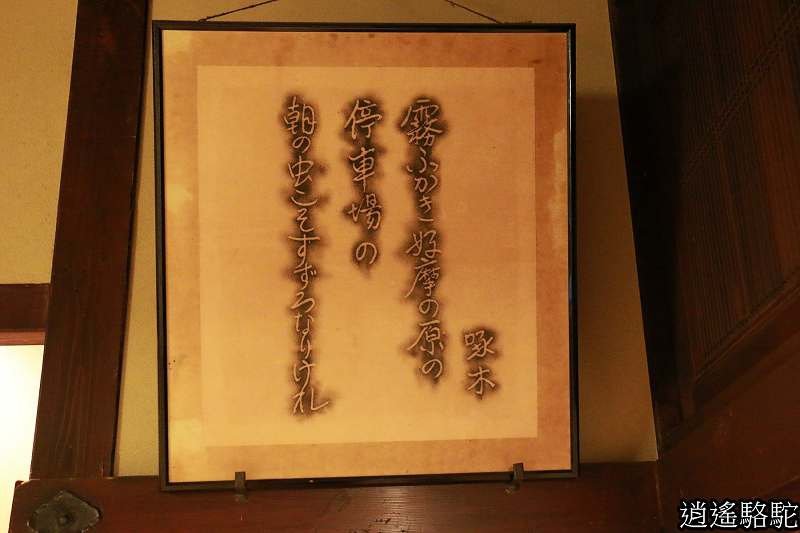 啄木
霧ふかき好摩の原の
停車場の
朝の虫こそすずろなりけれ
逍遙駱駝